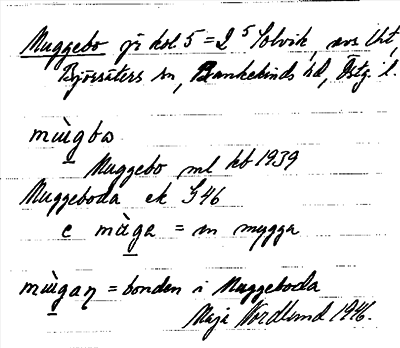 Muggebo jr kol. 5 = 2⁵ Solvik, avs. Uht,
Björsäters sn, Bankekinds hd, Östg. l.
mùgba
Muggebo ml kb 1939
Muggeboda ek G 46
e mùga = en mygga
mùgaŋ = bonden i Muggeboda
Maja Nordlund 1946.